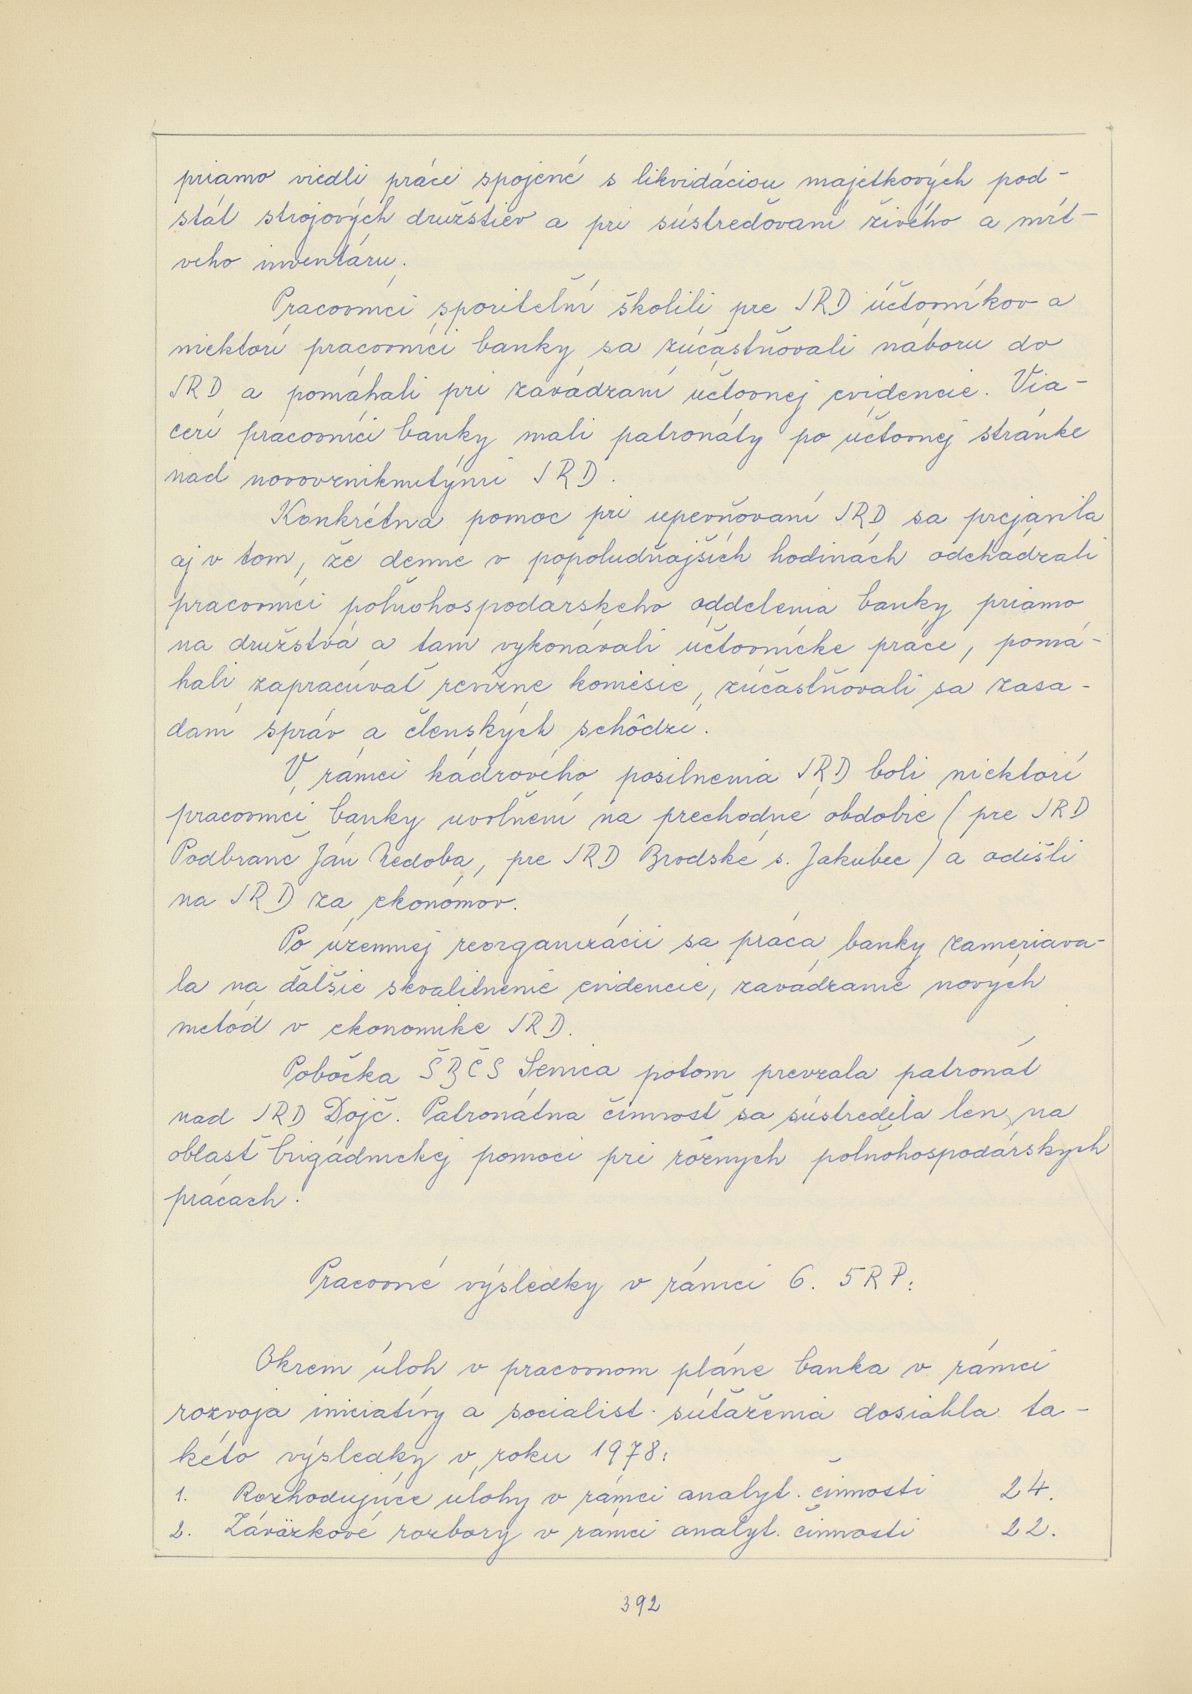 priamo viedli práce spojené s likvidáciou majetkových pod-
stát strojových družstiev a pri sústreďovaní živého a mŕt-
veho inventáru.
Pracovníci sporiteľní školili pre JRD účtovníkov a
niektorí pracovníci banky sa zúčastňovali náboru do
JRD a pomáhali pri zavádzaní účtovnej evidencie. Via-
cerí pracovníci banky mali patronáty po účtovnej stránke
nad novovzniknutými JRD.
Konkrétna pomoc pri upevňovaní JRD sa prejavila
aj v tom, že denne v popoludňajších hodinách odchádzali
pracovníci poľnohospodárskeho oddelenia banky priamo
na družstvá a tam vykonávali účtovnícke práce, pomá-
hali zapracúvať revízne komisie, zúčastňovali sa zasa-
daní správ a členských schôdzí.
V rámci kádrového posilnenia JRD boli niektorí
pracovníci banky uvoľnení na prechodné obdobie (pre JRD
Podbranč Ján Nedoba, pre JRD Brodské s. Jakubec) a odišli
na JRD za ekonómov.
Po územnej reorganizácii sa práca banky zameriava-
la na ďalšie skvalitnenie evidencie, zavádzanie nových
metód v ekonomike JRD.
Pobočka ŠBČS Senica potom prevzala patronát
nad JRD Dojč. Patronátna činnosť sa sústredila len na
oblasť brigádnickej pomoci pri rôznych poľnohospodárskych
prácach.
Pracovné výsledky v rámci 6. 5RP:
Okrem úloh v pracovnom pláne banka v rámci
rozvoja iniciatívy a socialist. súťaženia dosiahla ta-
kéto výsledky v roku 1978:
1. Rozhodujúce úlohy v rámci analyt. činnosti 24.
2. Záväzkové rozbory v rámci analyt. činnosti 22.
392